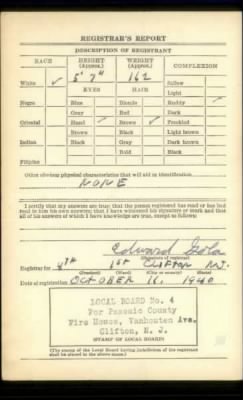 REGISTRAR'S REPORT
DESCRIPTION OF REGISTRANT
RACE HEIGHT (Approx.) WEIGHT (Approx.) COMPLEXION
White ✓ 5' 7" 162 Sallow
EYES HAIR Light
Negro Blue Blonde Ruddy ✓
Gray Red Dark
Oriental Hazel ✓ Brown ✓ Freckled
Brown Black Light brown
Indian Black Gray Dark brown
Bald Black
Filipino
Other obvious physical characteristics that will aid in identification
NONE
I certify that my answers are true; that the person registered has read or has had
read to him his own answers; that I have witnessed his signature or mark and that
all of his answers of which I have knowledge are true, except as follows:
Edward
Registrar for 4TH 1ST CLIFTON N.J.
(Precinct) (Ward) (City or county) (State)
Date of registration OCTOBER 16, 1940
LOCAL BOARD No. 4
For Passaic County
Fire House, Vanhouten Ave.
Clifton, N. J.
(STAMP OF LOCAL BOARD)
(The stamp of the Local Board having jurisdiction of the registrant
shall be placed in the above space.)